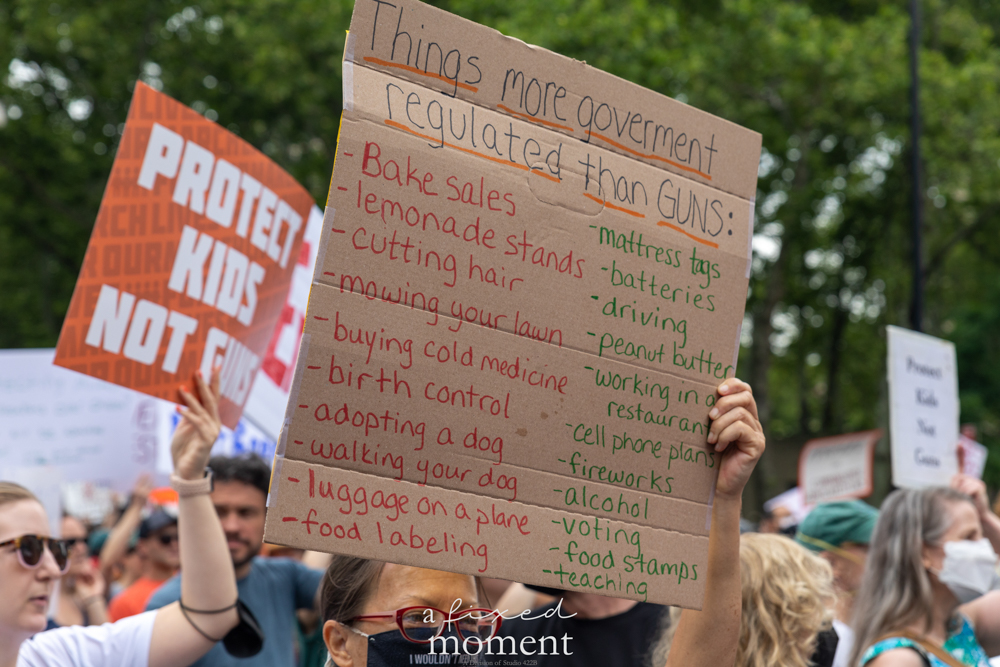 Things more goverment
regulated than GUNS:
- Bake sales
- lemonade stands
- cutting hair
- mowing your lawn
- buying cold medicine
- birth control
- adopting a dog
- walking your dog
- luggage on a plane
- food labeling
- mattress tags
- batteries
- driving
- peanut butter
- working in a
restaurant
- cell phone plans
- fireworks
- alcohol
- voting
- food stamps
- teaching
PROTECT
KIDS
NOT GUNS
Protect
Kids
Not
Guns
a fixed
moment
A Division of Studio 4228
I WOULDN'T